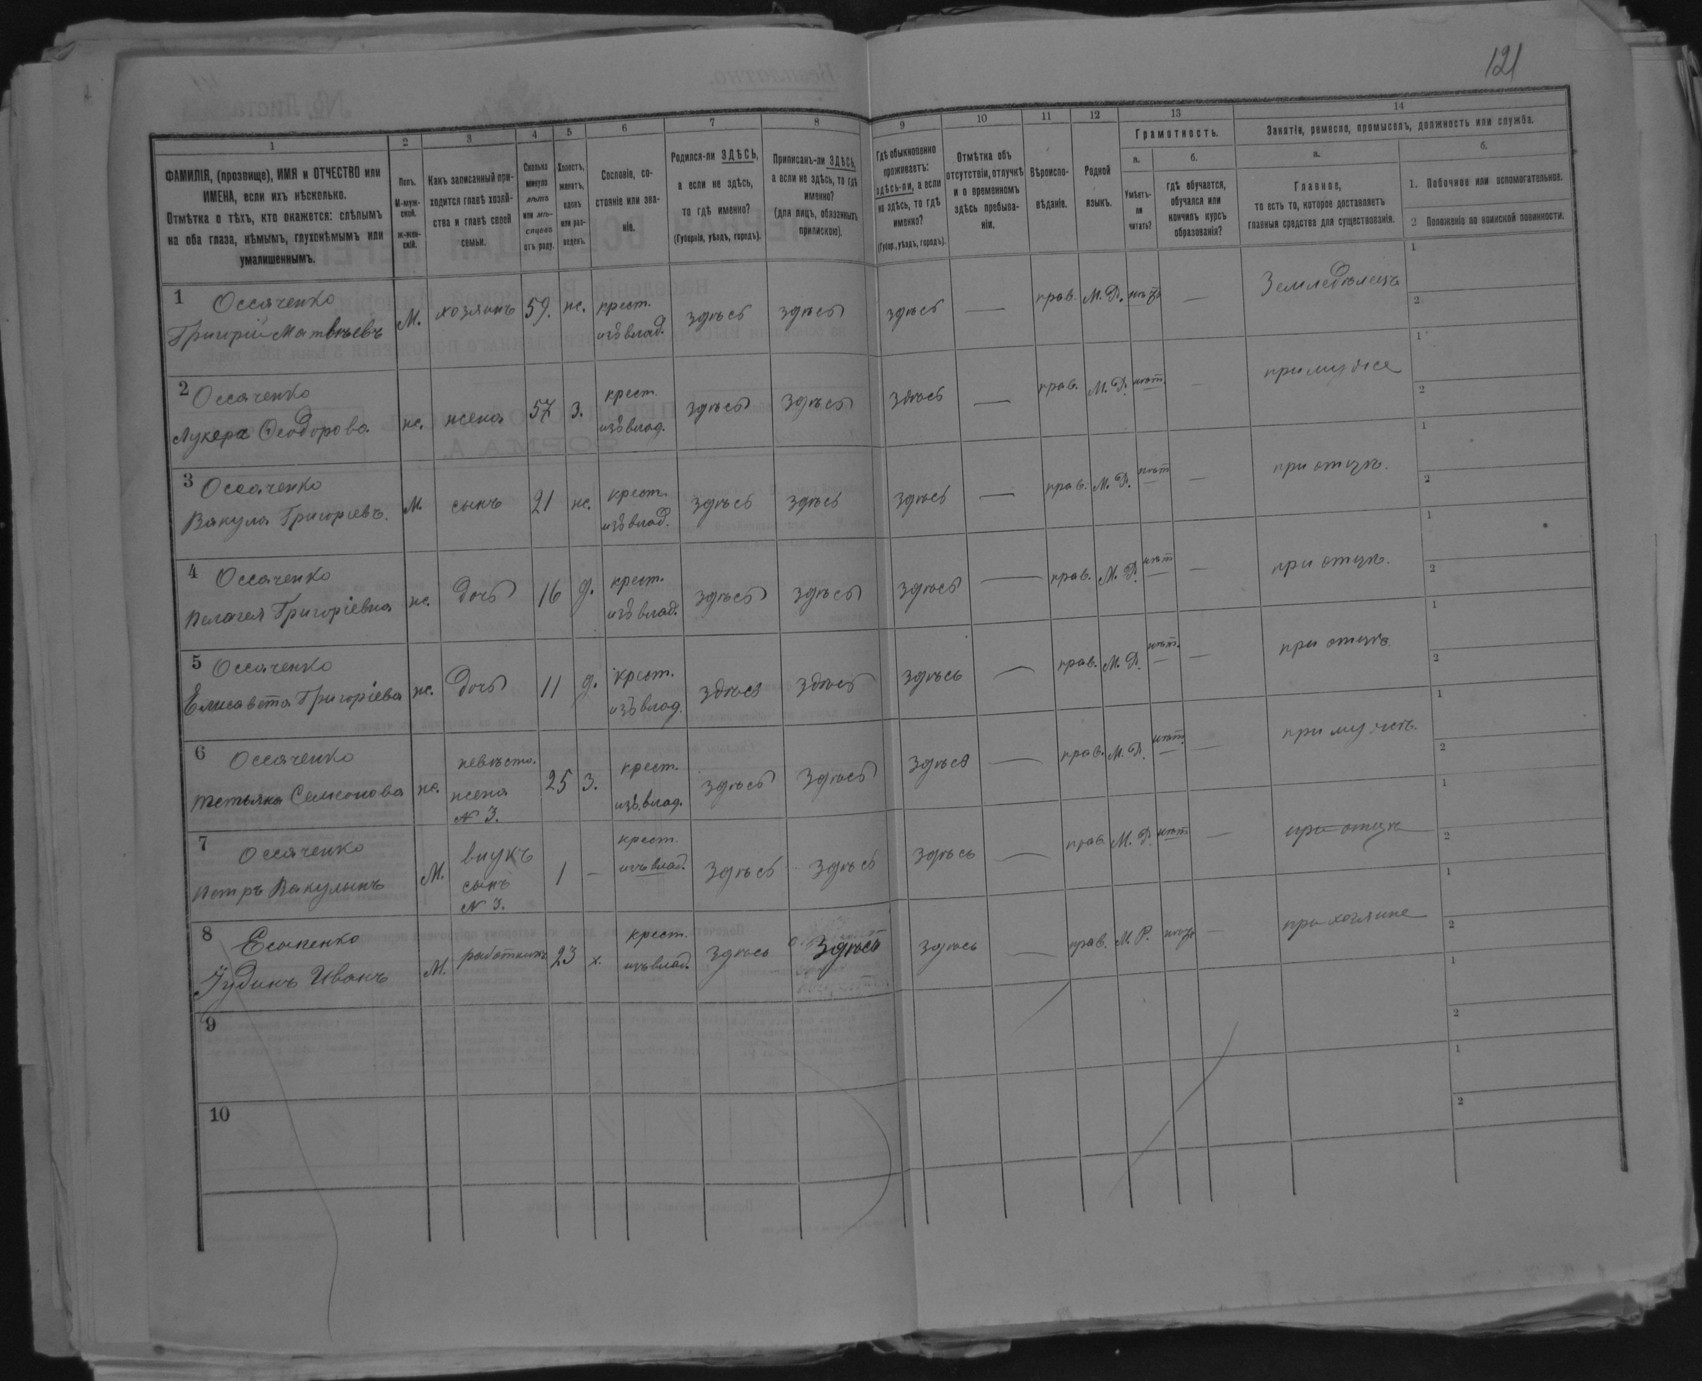 121
1 2 3 4 5 6 7 8 9 10 11 12 13 14
ФАМИЛІЯ, (прозвище), ИМЯ и ОТЧЕСТВО или
ИМЕНА, если ихъ нѣсколько.
Отмѣтка о тѣхъ, кто окажется: слѣпымъ
на оба глаза, нѣмымъ, глухонѣмымъ или
умалишеннымъ.
Полъ.
М-муж-
ской.
Ж-жен-
скій.
Какъ записанный при-
ходится главѣ хозяй-
ства и главѣ своей
семьи.
Сколько
минуло
лѣтъ
или мѣ-
сяцевъ
отъ роду.
Холостъ,
женатъ,
вдовъ
или раз-
веденъ.
Сословіе, со-
стояніе или зва-
ніе.
Родился-ли ЗДѢСЬ,
а если не здѣсь,
то гдѣ именно?
(Губернія, уѣздъ, городъ).
Приписанъ-ли ЗДѢСЬ,
а если не здѣсь, то гдѣ
именно?
(для лицъ, обязанныхъ
припискою).
Гдѣ обыкновенно
проживаетъ:
здѣсь-ли, а если
не здѣсь, то гдѣ
именно?
(Губер., уѣздъ, городъ).
Отмѣтка объ
отсутствіи, отлучкѣ
и о временномъ
здѣсь пребыва-
ніи.
Вѣроиспо-
вѣданіе.
Родной
языкъ.
Грамотность.
а.
Умѣетъ-
ли
читать?
б.
гдѣ обучается,
обучался или
кончилъ курсъ
образованія?
Занятія, ремесло, промыселъ, должность или служба.
а.
Главное,
то есть то, которое доставляетъ
главныя средства для существованія.
б.
1. Побочное или вспомогательное.
2 Положеніе по воинской повинности.
1 Осаченко
Григорій Матвѣевъ М. хозяинъ 59. ж. крест.
изъ влад. здѣсь здѣсь здѣсь — прав. М. Р. — Земледѣлецъ 1 2
2 Осаченко
Лукера Ѳеодорова ж. жена 57 з. крест.
изъ влад. здѣсь здѣсь здѣсь — прав. М. Р. нѣт. — при мужѣ 1 2
3 Осаченко
Вакула Григорьевъ. М. сынъ 21 ж. крест.
изъ влад. здѣсь здѣсь здѣсь — прав. М. Р. нѣт — при отцѣ. 1 2
4 Осаченко
Пелагея Григоріевна ж. дочь 16 д. крест.
изъ влад. здѣсь здѣсь здѣсь — прав. М. Р. нѣт — при отцѣ. 1 2
5 Осаченко
Елисавета Григоріева ж. дочь 11 д. крест.
изъ влад. здѣсь здѣсь здѣсь — прав. М. Р. нѣт. — при отцѣ 1 2
6 Осаченко
Тетьяна Семіонова ж. невѣста.
жена
№ 3. 25 з. крест.
изъ влад. здѣсь здѣсь здѣсь — прав. М. Р. нѣт. — при мужѣ. 1 2
7 Осаченко
Петръ Вакулынъ М. внукъ
сынъ
№ 3. 1 — крест.
изъ влад. здѣсь здѣсь здѣсь — прав. М. Р. нѣт — при отцѣ 1 2
8 Есипенко
Иванъ М. работникъ 23 х. крест.
изъ влад. здѣсь здѣсь здѣсь — прав. М. Р. — при хозяине 1 2
9 1 2
10 1 2